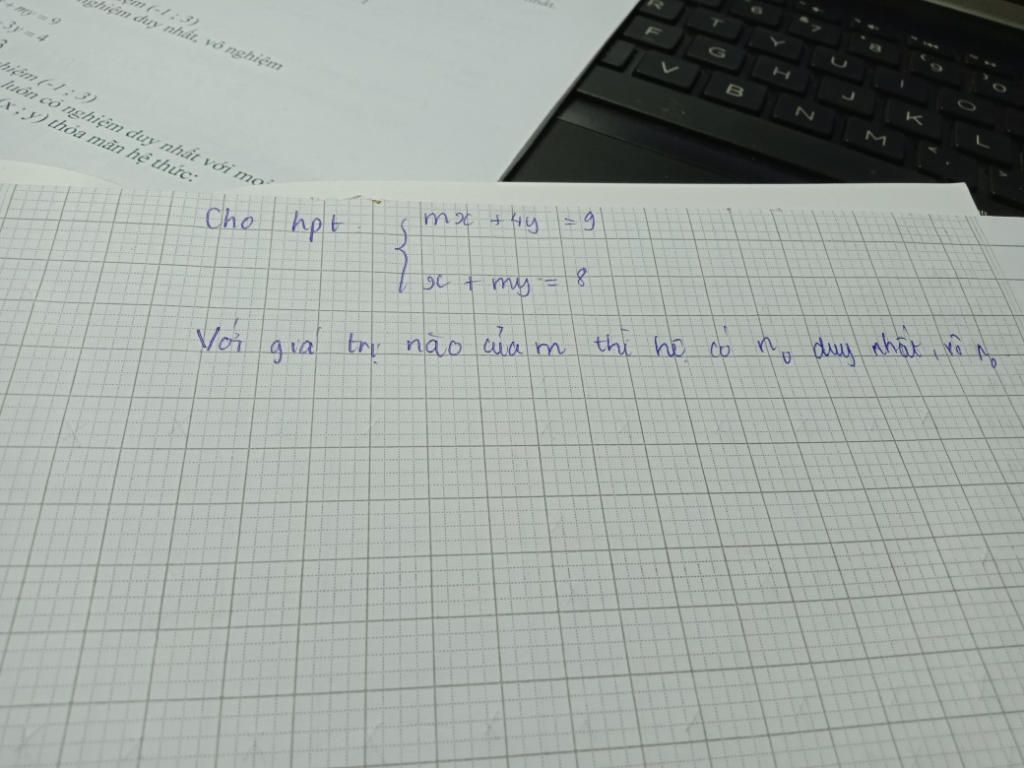 ệm (-1 ; 3)
nghiệm duy nhất, vô nghiệm
+ my = 9
3y = 4
hiệm (-1 ; 3)
luôn có nghiệm duy nhất với mọi
(x ; y) thỏa mãn hệ thức:
R T Y U I O
F G H J K L
V B N M
Cho hpt { mx + 4y = 9
x + my = 8
Với giá trị nào của m thì hệ có n₀ duy nhất, vô n₀